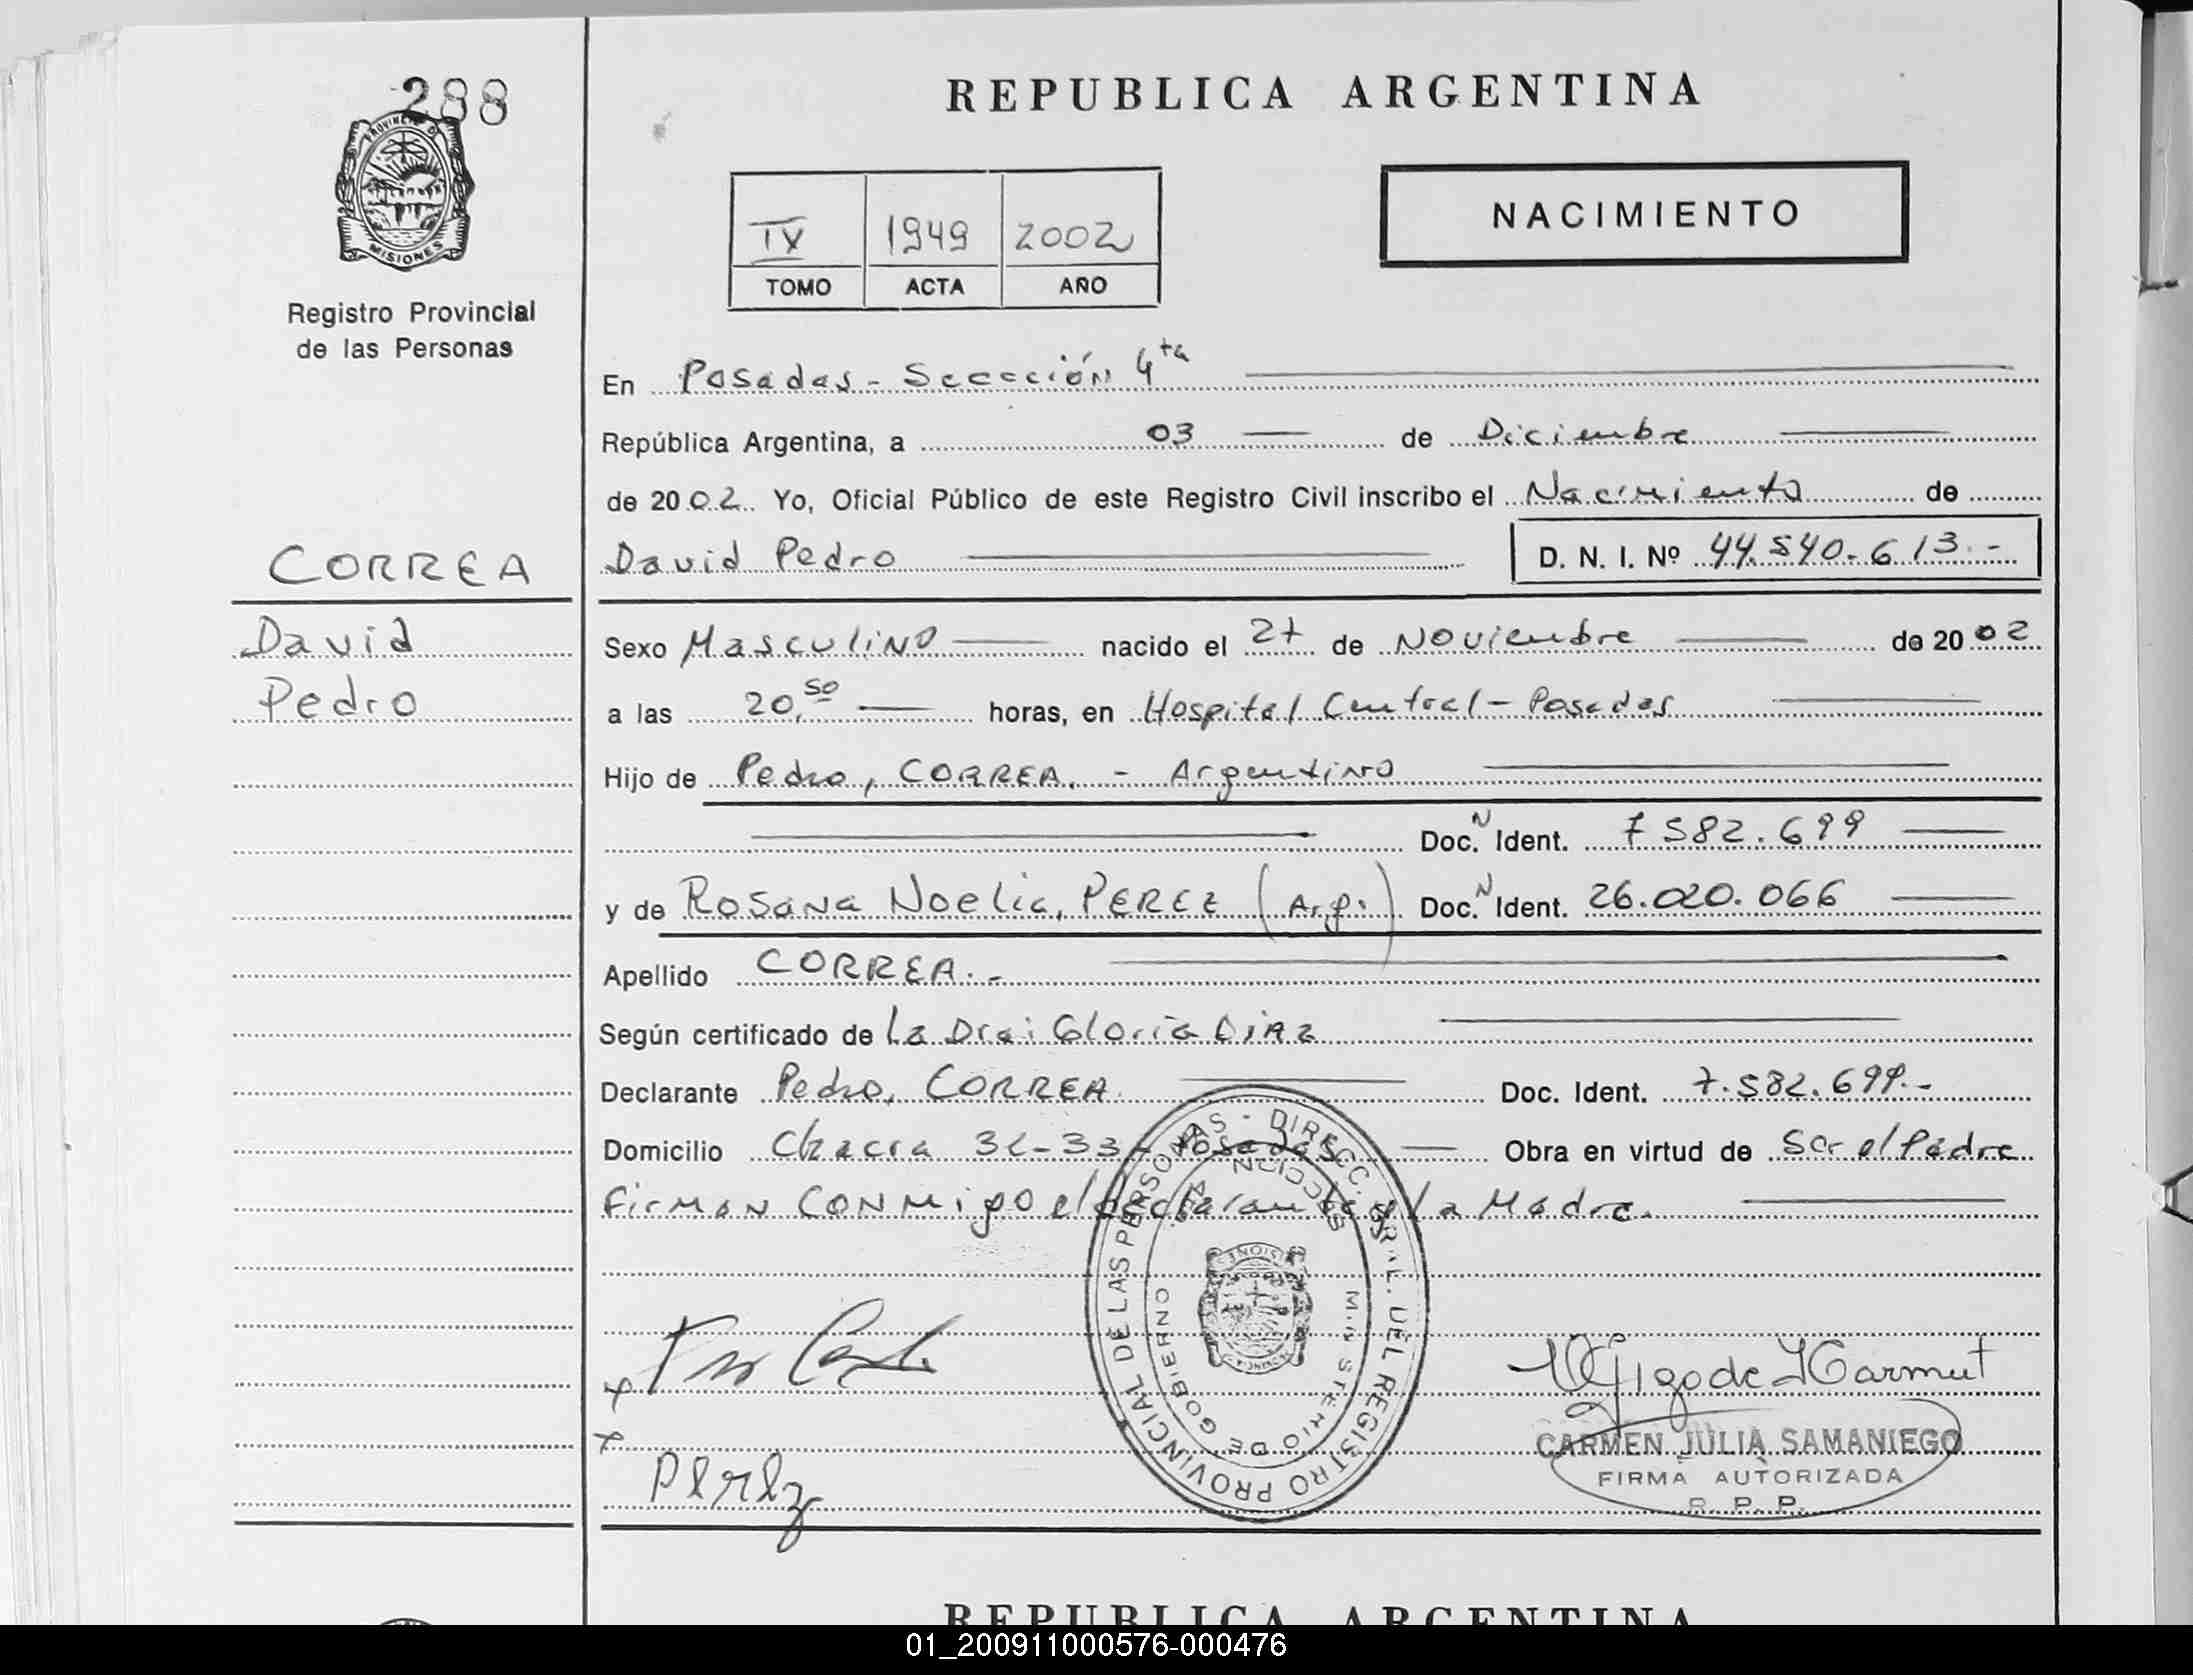 288
PROVINCIA D
MISIONES
Registro Provincial
de las Personas
CORREA
David
Pedro
REPUBLICA ARGENTINA
IV 1949 2002
TOMO ACTA AÑO
NACIMIENTO
En Posadas - Seccción 4ta
República Argentina, a 03 de Diciembre
de 2002 Yo, Oficial Público de este Registro Civil inscribo el Nacimiento de
David Pedro D. N. I. Nº 44.540.613.-
Sexo Masculino nacido el 27 de Noviembre de 2002
a las 20,50 horas, en Hospital Central - Posadas
Hijo de Pedro, CORREA. - Argentino
Doc. N Ident. 7582.699
y de Rosana Noelia, PEREZ (Arg.) Doc. N Ident. 26.020.066
Apellido CORREA.-
Según certificado de La Dra: Gloria Diaz
Declarante Pedro, CORREA. Doc. Ident. 7.582.699.-
Domicilio Chacra 32-33 - Posadas Obra en virtud de Ser el Padre
Firman conmigo el declarante y la Madre.
DIRECC. GRAL. DEL REGISTRO PROVINCIAL DE LAS PERSONAS -
MINISTERIO DE GOBIERNO
x
x
Perez
CARMEN JULIA SAMANIEGO
FIRMA AUTORIZADA
R. P. P.
REPUBLICA ARGENTINA
01_200911000576-000476